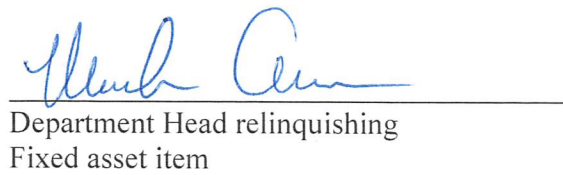 Department Head relinquishing
Fixed asset item